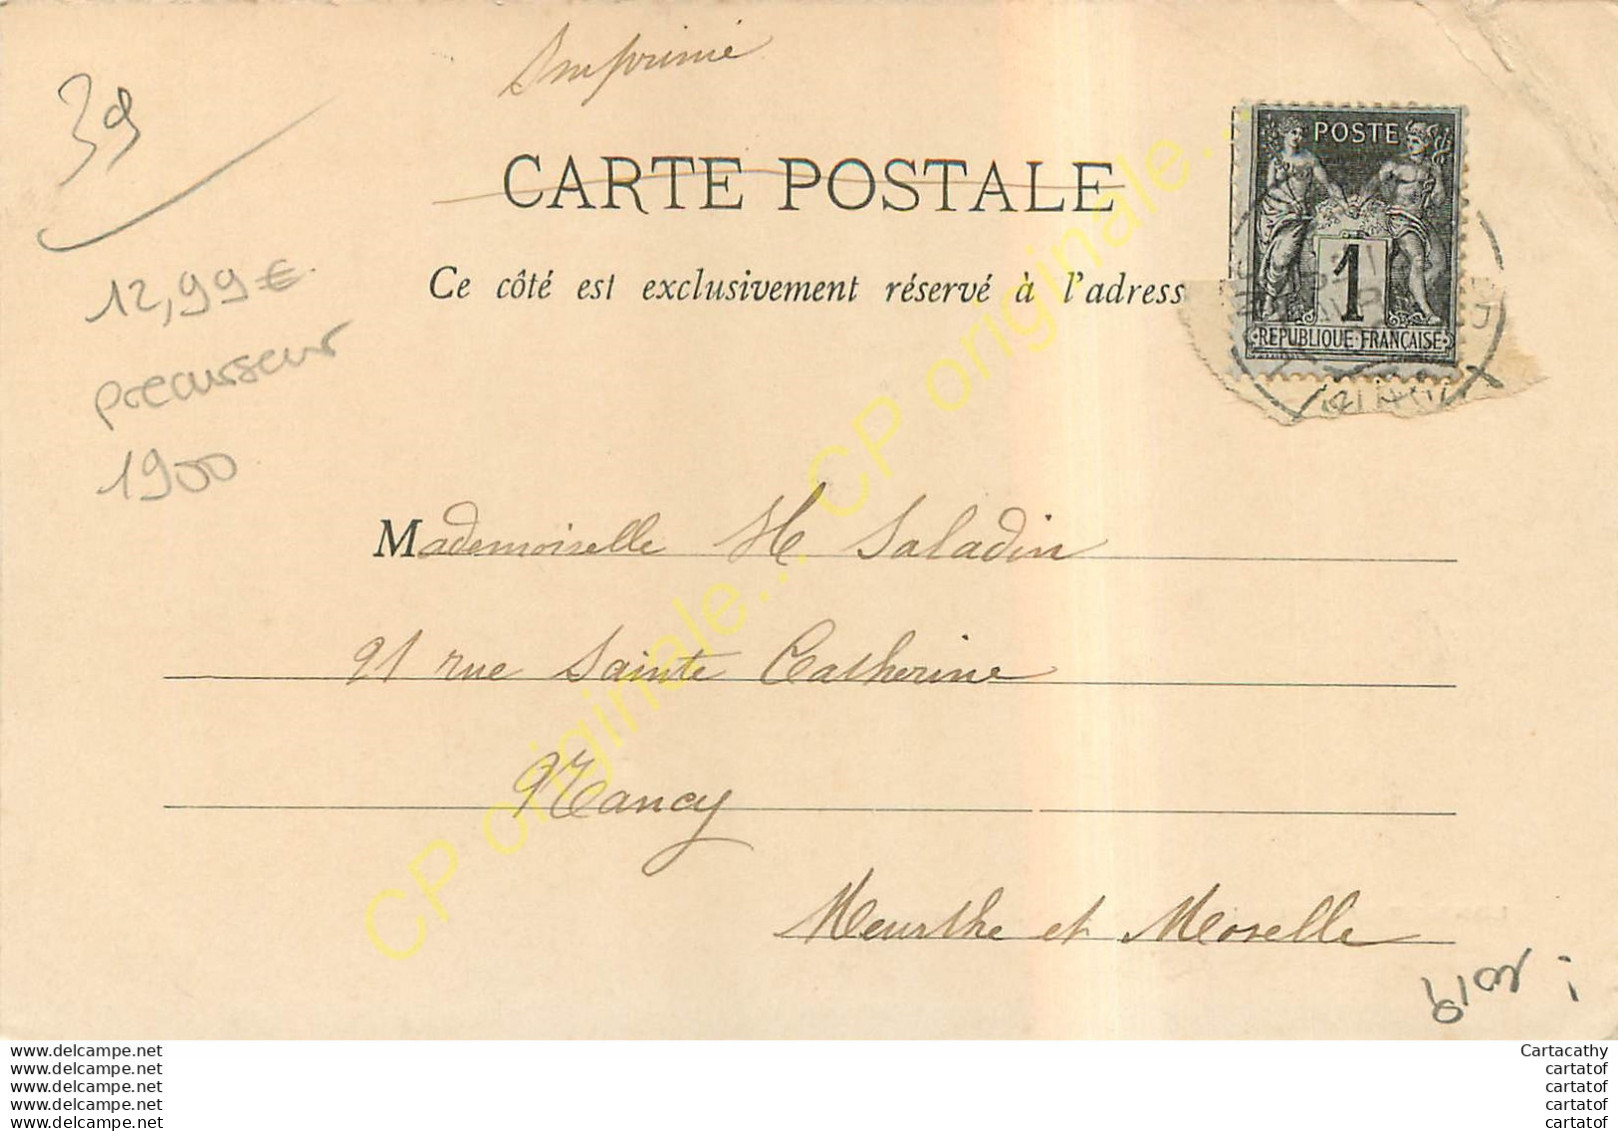 Imprimé
39
CARTE POSTALE
POSTE
1
REPUBLIQUE FRANÇAISE
12,99€
Ce côté est exclusivement réservé à l'adress
precurseur
1900
Mademoiselle H Saladin
91 rue Sainte Catherine
Nancy
Meurthe et Moselle
CP originale... CP originale...
www.delcampe.net
www.delcampe.net
www.delcampe.net
www.delcampe.net
www.delcampe.net
Cartacathy
cartatof
cartatof
cartatof
cartatof